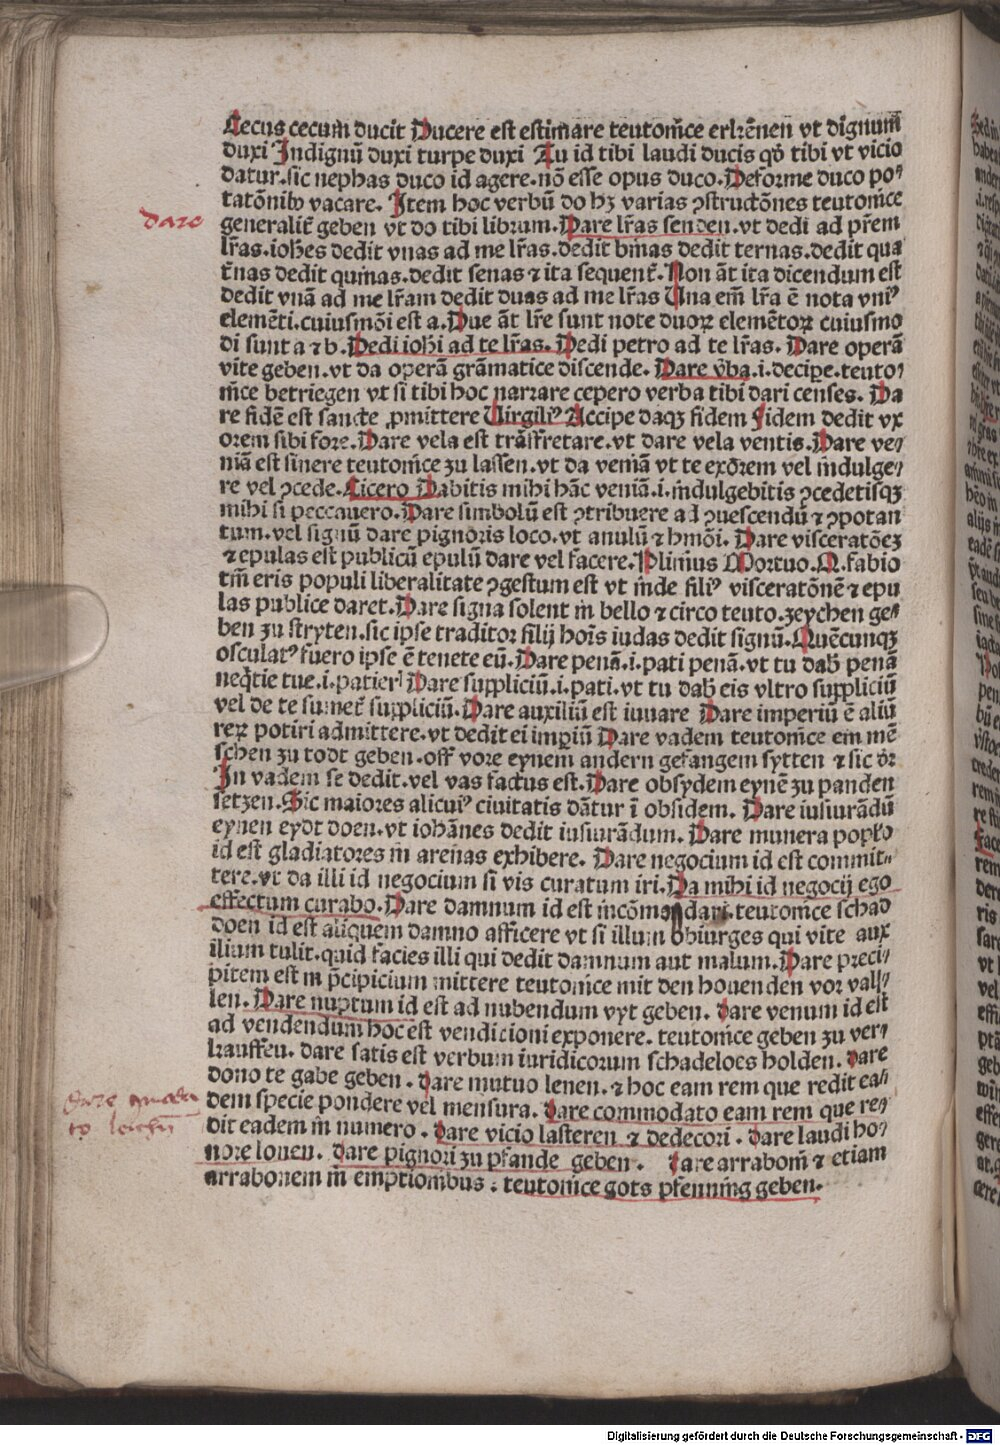 Cecus cecum ducit Ducere est estimare teutonice erkēnen vt dignum
duxi Indignū duxi turpe duxi Tu id tibi laudi ducis qđ tibi vt vicio
datur. sic nephas duco id agere. nō esse opus duco. Deforme duco po⸗
tatōnibꝰ vacare. Item hoc verbū do hꝫ varias ꝯstructōnes teutonice
dare
generalit̄ geben vt do tibi librum. Dare lr̄as senden. vt dedi ad pr̄em
lr̄as. ioh̄es dedit vnas ad me lr̄as. dedit binas dedit ternas. dedit qua
t̄nas dedit quinas. dedit senas ⁊ ita sequent̄. Non āt ita dicendum est
dedit vnā ad me lr̄am dedit duas ad me lr̄as Una em̄ lr̄a ē nota vniꝰ
elemēti. cuiusmōi est a. Due āt lr̄e sunt note duoꝝ elemētoꝝ cuiusmo
di sunt a ⁊ b. Dedi ioh̄i ad te lr̄as. Dedi petro ad te lr̄as. Dare operā
vite geben. vt da operā grāmatice discende. Dare v̄ba .i. decipe. teuto⸗
nice betriegen vt si tibi hoc narrare cepero verba tibi dari censes. Da
re fidē est sancte ꝓmittere Uirgiliꝰ Accipe daqꝫ fidem Fidem dedit vx
orem sibi fore. Dare vela est trāsfretare. vt dare vela ventis. Dare ve⸗
niā est sinere teutonice zu lassen. vt da veniā vt te exorem vel indulge⸗
re vel ꝯcede. Cicero Dabitis mihi hāc veniā .i. indulgebitis ꝯcedetisqꝫ
mihi si peccauero. Dare simbolū est ꝯtribuere ad ꝯuescendū ⁊ ꝯpotan
tum. vel signū dare pignoris loco. vt anulū ⁊ hmōi. Dare visceratōeꝫ
⁊ epulas est publicū epulū dare vel facere. Plinius Mortuo. M. fabio
tm̄ eris populi liberalitate ꝯgestum est vt inde filiꝰ visceratōnē ⁊ epu
las publice daret. Dare signa solent in bello ⁊ circo teuto. zeychen ge⸗
ben zu stryten. sic ipse traditor filij hoīs iudas dedit signū. Quēcunqꝫ
osculatꝰ fuero ipse ē tenete eū. Dare penā .i. pati penā. vt tu dab̄ penā
neq̄tie tue .i. patieris Dare suppliciū .i. pati. vt tu dab̄ eis vltro suppliciū
vel de te sumet̄ suppliciū. Dare auxiliū est iuuare Dare imperiū ē aliū
reꝝ potiri admittere. vt dedit ei imꝑiū Dare vadem teutonice ein mē
schen zu todt geben. off vore eynem andern gefangem sytten ⁊ sic dr̄
In vadem se dedit. vel vas factus est. Dare obsydem eynē zu panden
setzen. Sic maiores alicuiꝰ ciuitatis dātur ī obsidem. Dare iusiurādū
eynen eydt doen. vt iohānes dedit iusiurādum. Dare munera poplo
id est gladiatores in arenas exhibere. Dare negocium id est commit⸗
tere. vt da illi id negocium si vis curatum iri. Da mihi id negocij ego
effectum curabo. Dare damnum id est incōmodari. teutonice schad
doen id est aliquem damno afficere vt si illum obiurges qui vite aux
ilium tulit. quid facies illi qui dedit damnum aut malum. Dare preci⸗
pitem est in p̄cipicium mittere teutonice mit den houenden vor vall⸗
len. Dare nuptum id est ad nubendum vyt geben. dare venum id est
ad vendendum hoc est vendicioni exponere. teutonice geben zu ver⸗
kauffen. dare satis est verbum iuridicorum schadeloes holden. dare
dono te gabe geben. dare mutuo lenen. ⁊ hoc eam rem que redit ea⸗
dem specie pondere vel mensura. dare commodato eam rem que re⸗
dit eadem in numero. dare vicio lasteren ⁊ dedecori. dare laudi ho⸗
nore louen. dare pignori zu pfande geben. dare arraboni ⁊ etiam
arrabonem in emptionibus : teutonice gots pfenning geben.
Digitalisierung gefördert durch die Deutsche Forschungsgemeinschaft - DFG